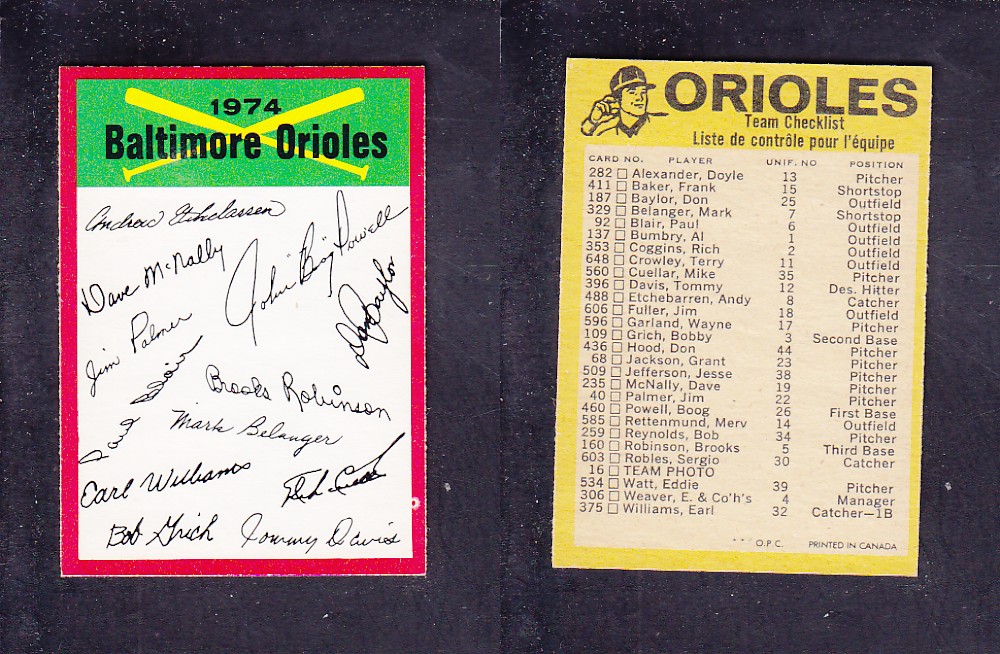 1974
Baltimore Orioles
Andrew Etchebarren
Dave McNally
John "Boog" Powell
Don Baylor
Jim Palmer
Paul Blair
Brooks Robinson
Mark Belanger
Earl Williams
Bob Grich
Tommy Davis
ORIOLES
Team Checklist
Liste de contrôle pour l'équipe
CARD NO. PLAYER UNIF. NO POSITION
282 ☐ Alexander, Doyle 13 Pitcher
411 ☐ Baker, Frank 15 Shortstop
187 ☐ Baylor, Don 25 Outfield
329 ☐ Belanger, Mark 7 Shortstop
92 ☐ Blair, Paul 6 Outfield
137 ☐ Bumbry, Al 1 Outfield
353 ☐ Coggins, Rich 2 Outfield
648 ☐ Crowley, Terry 11 Outfield
560 ☐ Cuellar, Mike 35 Pitcher
396 ☐ Davis, Tommy 12 Des. Hitter
488 ☐ Etchebarren, Andy 8 Catcher
606 ☐ Fuller, Jim 18 Outfield
596 ☐ Garland, Wayne 17 Pitcher
109 ☐ Grich, Bobby 3 Second Base
436 ☐ Hood, Don 44 Pitcher
68 ☐ Jackson, Grant 23 Pitcher
509 ☐ Jefferson, Jesse 38 Pitcher
235 ☐ McNally, Dave 19 Pitcher
40 ☐ Palmer, Jim 22 Pitcher
460 ☐ Powell, Boog 26 First Base
585 ☐ Rettenmund, Merv 14 Outfield
259 ☐ Reynolds, Bob 34 Pitcher
160 ☐ Robinson, Brooks 5 Third Base
603 ☐ Robles, Sergio 30 Catcher
16 ☐ TEAM PHOTO
534 ☐ Watt, Eddie 39 Pitcher
306 ☐ Weaver, E. & Co'h's 4 Manager
375 ☐ Williams, Earl 32 Catcher—1B
*** O.P.C. PRINTED IN CANADA